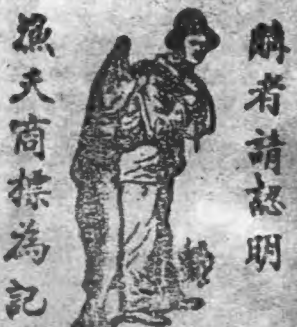 購者請認明
漁夫商標為記